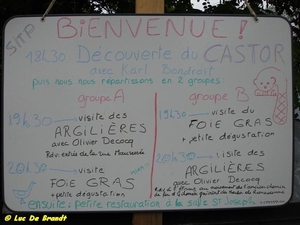 SITP
BIENVENUE !
18h30 Découverte du CASTOR
avec Karl
puis nous nous répartissons en 2 groupes
groupe A
19h30 visite des
ARGILIÈRES
avec Olivier Decocq
20h30 visite
FOIE GRAS
+ petite dégustation
groupe B
19h30 visite du
FOIE GRAS
+ petite dégustation
20h30 : visite des
ARGILIÈRES
avec Olivier Decocq
ensuite : petite restauration à la salle St Joseph
© Luc De Brandt